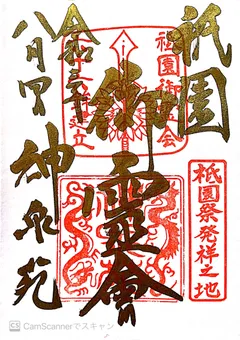 祇園
祇園御霊会
御靈會
祇園祭発祥之地
神泉苑
令和
八月
CS CamScannerでスキャン